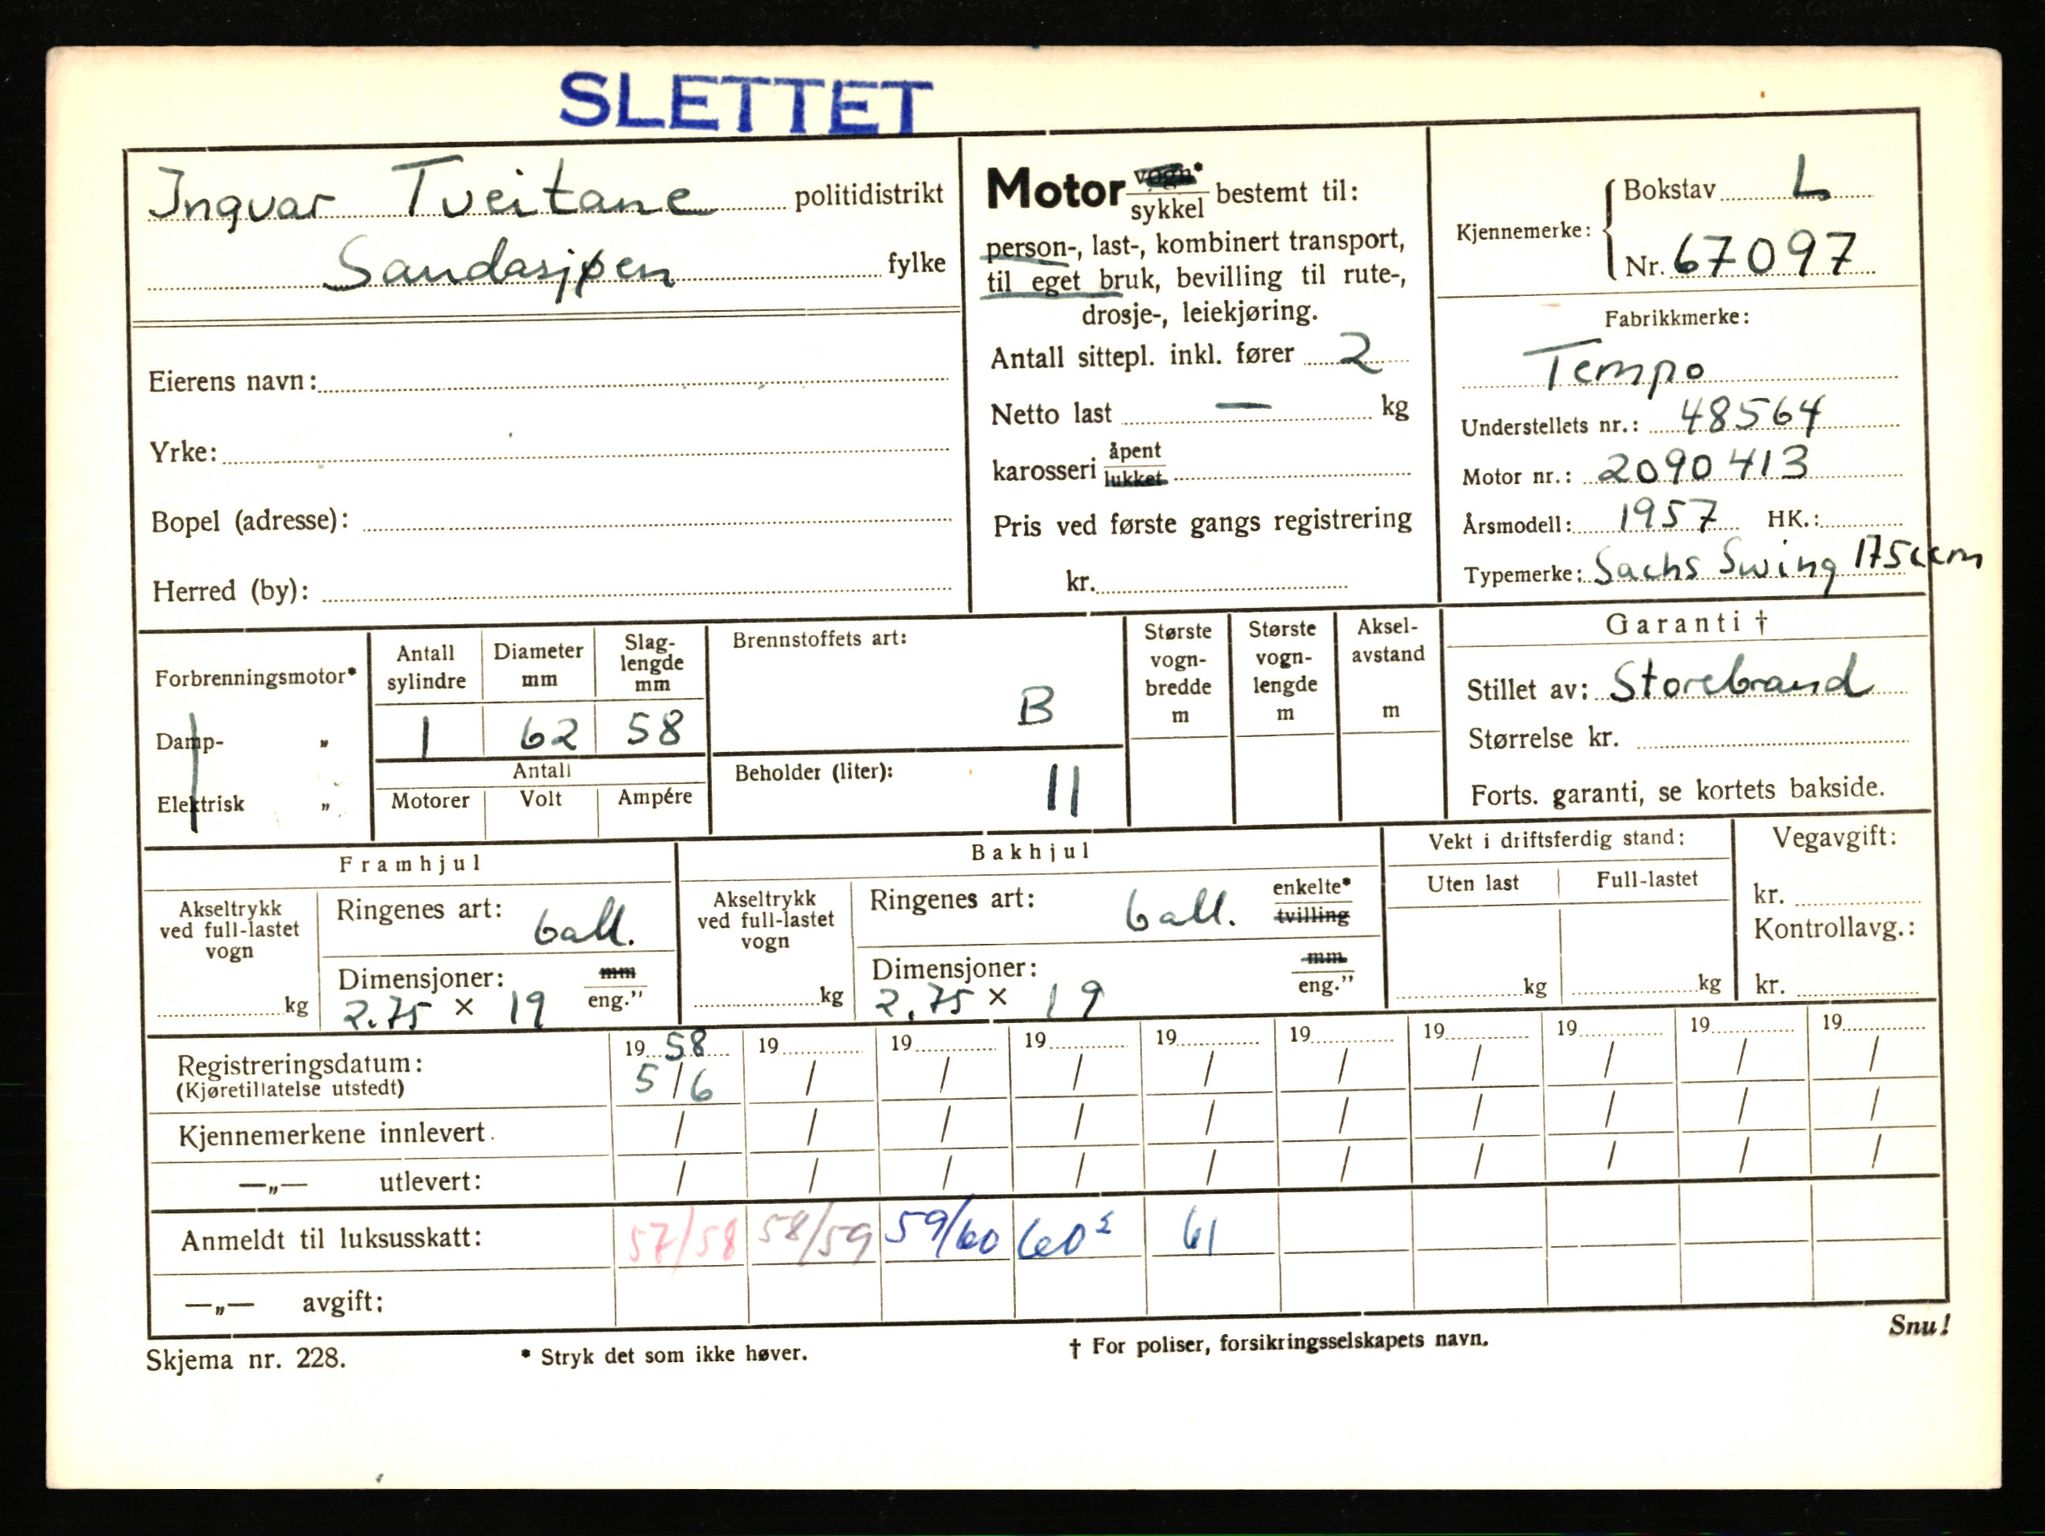 SLETTET
Ingvar Tveitane politidistrikt
Sandasjøen fylke
Eierens navn:
Yrke:
Bopel (adresse):
Herred (by):
Motor vogn* sykkel bestemt til:
person-, last-, kombinert transport,
til eget bruk, bevilling til rute-,
drosje-, leiekjøring.
Antall sittepl. inkl. fører 2
Netto last — kg
karosseri åpent lukket
Pris ved første gangs registrering
kr.
Kjennemerke: Bokstav L
Nr. 67097
Fabrikkmerke:
Tempo
Understellets nr.: 48564
Motor nr.: 2090413
Årsmodell: 1957 HK.:
Typemerke: Sachs Swing 175ccm
Forbrenningsmotor*
Damp- "
Elektrisk "
Antall sylindre
1
Diameter mm
62
Slag-lengde mm
58
Antall
Motorer Volt Ampére
Brennstoffets art:
B
Beholder (liter):
11
Største vogn-bredde m
Største vogn-lengde m
Aksel-avstand m
Garanti †
Stillet av: Storebrand
Størrelse kr.
Forts. garanti, se kortets bakside.
Framhjul
Akseltrykk ved full-lastet vogn
kg
Ringenes art:
ball.
Dimensjoner: mm eng."
2.75 × 19
Bakhjul
Akseltrykk ved full-lastet vogn
kg
Ringenes art: enkelte* tvilling
ball.
Dimensjoner: mm eng."
2.75 × 19
Vekt i driftsferdig stand:
Uten last Full-lastet
kg kg
Vegavgift:
kr.
Kontrollavg.:
kr.
Registreringsdatum: 1958 19 19 19 19 19 19 19 19 19
(Kjøretillatelse utstedt) 5/6 / / / / / / / / /
Kjennemerkene innlevert. / / / / / / / / / /
—„— utlevert: / / / / / / / / / /
Anmeldt til luksusskatt: 57/58 58/59 59/60 60² 61
—„— avgift:
Snu!
Skjema nr. 228. * Stryk det som ikke høver. † For poliser, forsikringsselskapets navn.